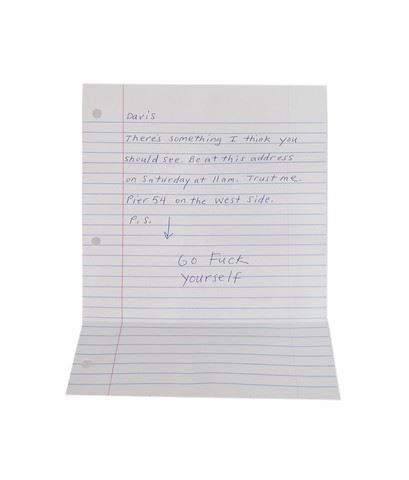 Davis
There's something I think you
should see. Be at this address
on Saturday at 11am. Trust me.
Pier 54 on the West Side.
P.S.
Go Fuck
Yourself